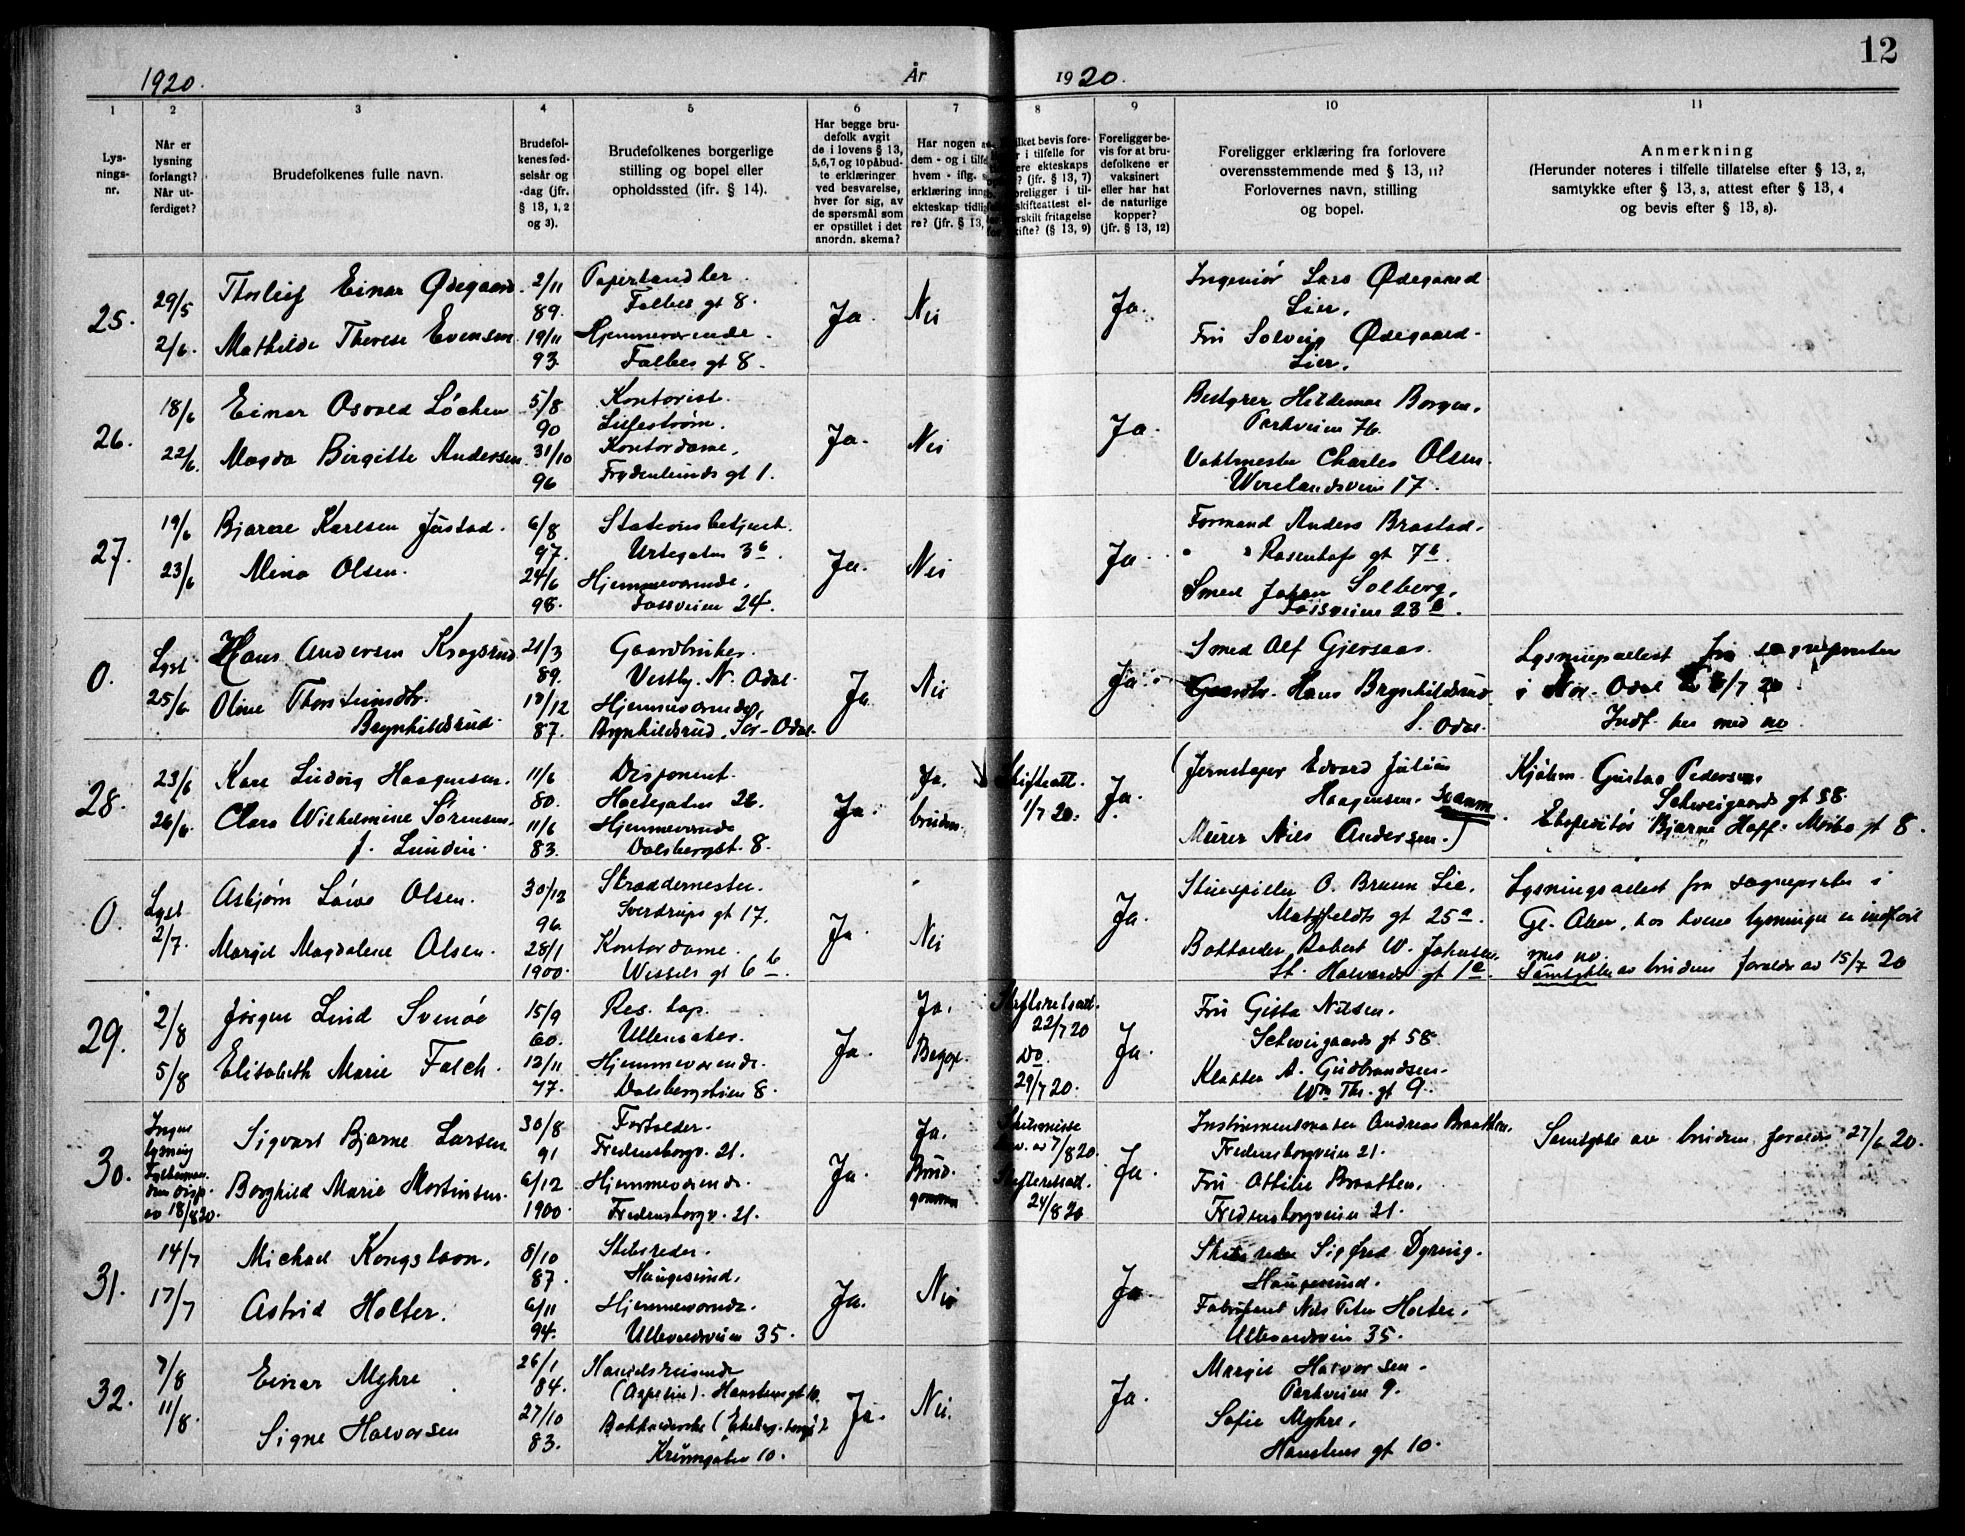 12
1920.
År
1920.
1
2
3
4
5
6
7
8
9
10
11
Lys-
nings-
nr.
Når er
lysning
forlangt?
Når ut-
ferdiget?
Brudefolkenes fulle navn.
Brudefol-
kenes fød-
selsår og
-dag (jfr.
§ 13, 1, 2
og 3).
Brudefolkenes borgerlige
stilling og bopel eller
opholdssted (ifr. § 14).
Har begge bru-
defolk avgit
de i lovens § 13,
5,6,7 og 10 påbud-
te erklæringer
ved besvarelse,
hver for sig, av
de spørsmål som
er opstillet i det
anordn. skema?
Har nogen
dem - og i tilfe
hvem - iflg.
erklæring inng
ekteskap tidlig
re? (jfr. § 13,
lket bevis fore-
r i tilfelle for
ere ekteskaps
? (jfr. § 13, 7)
oreligger i til-
skifteattest el-
rskilt fritagelse
kifte? (§ 13, 9)
Foreligger be-
vis for at bru-
defolkene er
vaksinert
eller har hat
de naturlige
kopper?
(jfr. § 13, 12)
Foreligger erklæring fra forlovere
overensstemmende med § 13, 11?
Forlovernes navn, stilling
og bopel.
Anmerkning
(Herunder noteres i tilfelle tillatelse efter § 13, 2,
samtykke efter § 13, 3, attest efter § 13, 4
og bevis efter § 13, 8).
25.
29/5
2/6.
Thorleif Einar Ødegaard.
Mathilde Therese Evensen.
2/11
89.
19/11
93.
Papirhandler.
Falbes gt 8.
Hjemmeværende.
Falbes gt 8.
Ja.
Nei
Ja.
Ingeniør Lars Ødegaard
Lier.
Fru Solveig Ødegaard.
Lier.
26.
18/6
22/6.
Einar Osvald Løchen
Magda Birgitte Andersen.
5/8
90
31/10
96
Kontorist.
Lillestrøm.
Kontordame.
Frydenlunds gt 1.
Ja.
Nei
Ja.
Bestyrer Hildemar Borgen.
Parkveien 76.
Vaktmester Charles Olsen.
17.
27.
19/6
23/6
Bjarne Karlsen Justad.
Mina Olsen.
6/8
97.
24/6
98.
Stationsbetjent.
Urtegaten 3b.
Hjemmeværende.
Fossveien 24.
Ja.
Nei
Ja.
Formand Anders Brastad.
" " Rosenhofs gt 7b.
Smed Johan Solberg,
Fossveien 23
0.
Lyst
25/6.
Hans Andersen Krogsrud
Oline Thorsteinsdtr.
Brynhildsrud.
21/3
89.
12/12
87.
Gaardbruker.
Vestby. N. Odal.
Hjemmeværende,
Brynhildsrud, Sør-Odal.
Ja
Nei
Ja.
Smed Alf Gjersaas.
Gaardbr. Hans Brynhildsrud.
S. Odal.
Lysningsattest fra sogneprester
i Nor. Odal av /7 20.
Indf. her med no.
28.
23/6
26/6.
Karl Ludvig Haagensen.
Clara Wilhelmine Sørensen.
f. Lundin.
11/6
80.
11/6
83.
Disponent.
Holtegaten 26.
Hjemmeværende
Dalsbergst. 8.
Ja.
Ja.
bruden.
Skifteatt.
1/7 20.
Ja.
(Jernstøper Edvard Julius
Haagensen.
Murer Nils Andersen.)
Kjøbm. Gustav Pedersen.
Schweigaards gt 58.
Ekspeditør Bjarne Hoff. gt 8.
0.
Lyst
2/7.
Asbjørn Løwe Olsen.
Margit Magdalene Olsen.
30/12
96.
28/1
1900.
Skreddermester.
Sverdrups gt 17.
Kontordame.
Wessels gt 6b.
Ja
Nei
Ja.
Skuespiller O. Bruun Lie.
Meltzfeldts gt 25a.
Bokholder Robert W. Johnsen.
St. Halvards gt 1e.
Lysningsattest fra sogneprester i
Gl. Aker, hos hvem lysningen er indført
med no.
Samtykke av brudens forældre av 15/7 20
29.
2/8
5/8
Jørgen Lind Svenøe
Elisabeth Marie Falch.
15/9
60.
12/11
77.
Res. kap.
Ullensaker.
Hjemmeværende.
Dalsbergstien 8.
Ja.
Ja.
Begge.
Skifteretsatt.
22/7 20
Do.
29/7 20.
Ja.
Fru Gitta Nilsen.
Schweigaards gt 58.
A. Gudbrandsen.
Wm Thr. gt 9.
30.
Ingen
lysning
18/8 20.
Sigvart Bjarne Larsen
Borghild Marie Mortinsen.
30/8
91
6/12
1900.
Forvalter.
Fredensborgv. 21.
Hjemmeværende.
Fredensborgv. 21.
Ja.
Ja.
Brud-
gommen
Skilsmisse
bev. av 7/8 20.
Skifteretsatt.
24/8 20
Ja.
Instrumentmaker Andreas Braathen.
Fredensborgveien 21.
Fru Ottilie Braathen,
Fredensborgveien 21.
Samtykke av brudens forældre 27/6 20.
31.
14/7
17/7
Michael Kongshavn.
Astrid Holter.
8/10
87.
6/11
94.
Skibsreder.
Haugesund.
Hjemmeværende.
Ullevaalsveien 35.
Ja.
Nei
Ja
Skibsreder Sigfred Dyring.
Haugesund.
Fabrikant Nils Peter Holter.
Ullevaalsveien 35.
32.
7/8
11/8.
Einar Myhre
Signe Halvorsen
26/1
84.
27/10
83.
Handelsreisende
Hansteensgt 10.
Krumgaten 10.
Ja.
Nei.
Ja.
Margit Halvorsen.
Parkveien 9.
Sofie Myhre,
Hansteens gt 10.